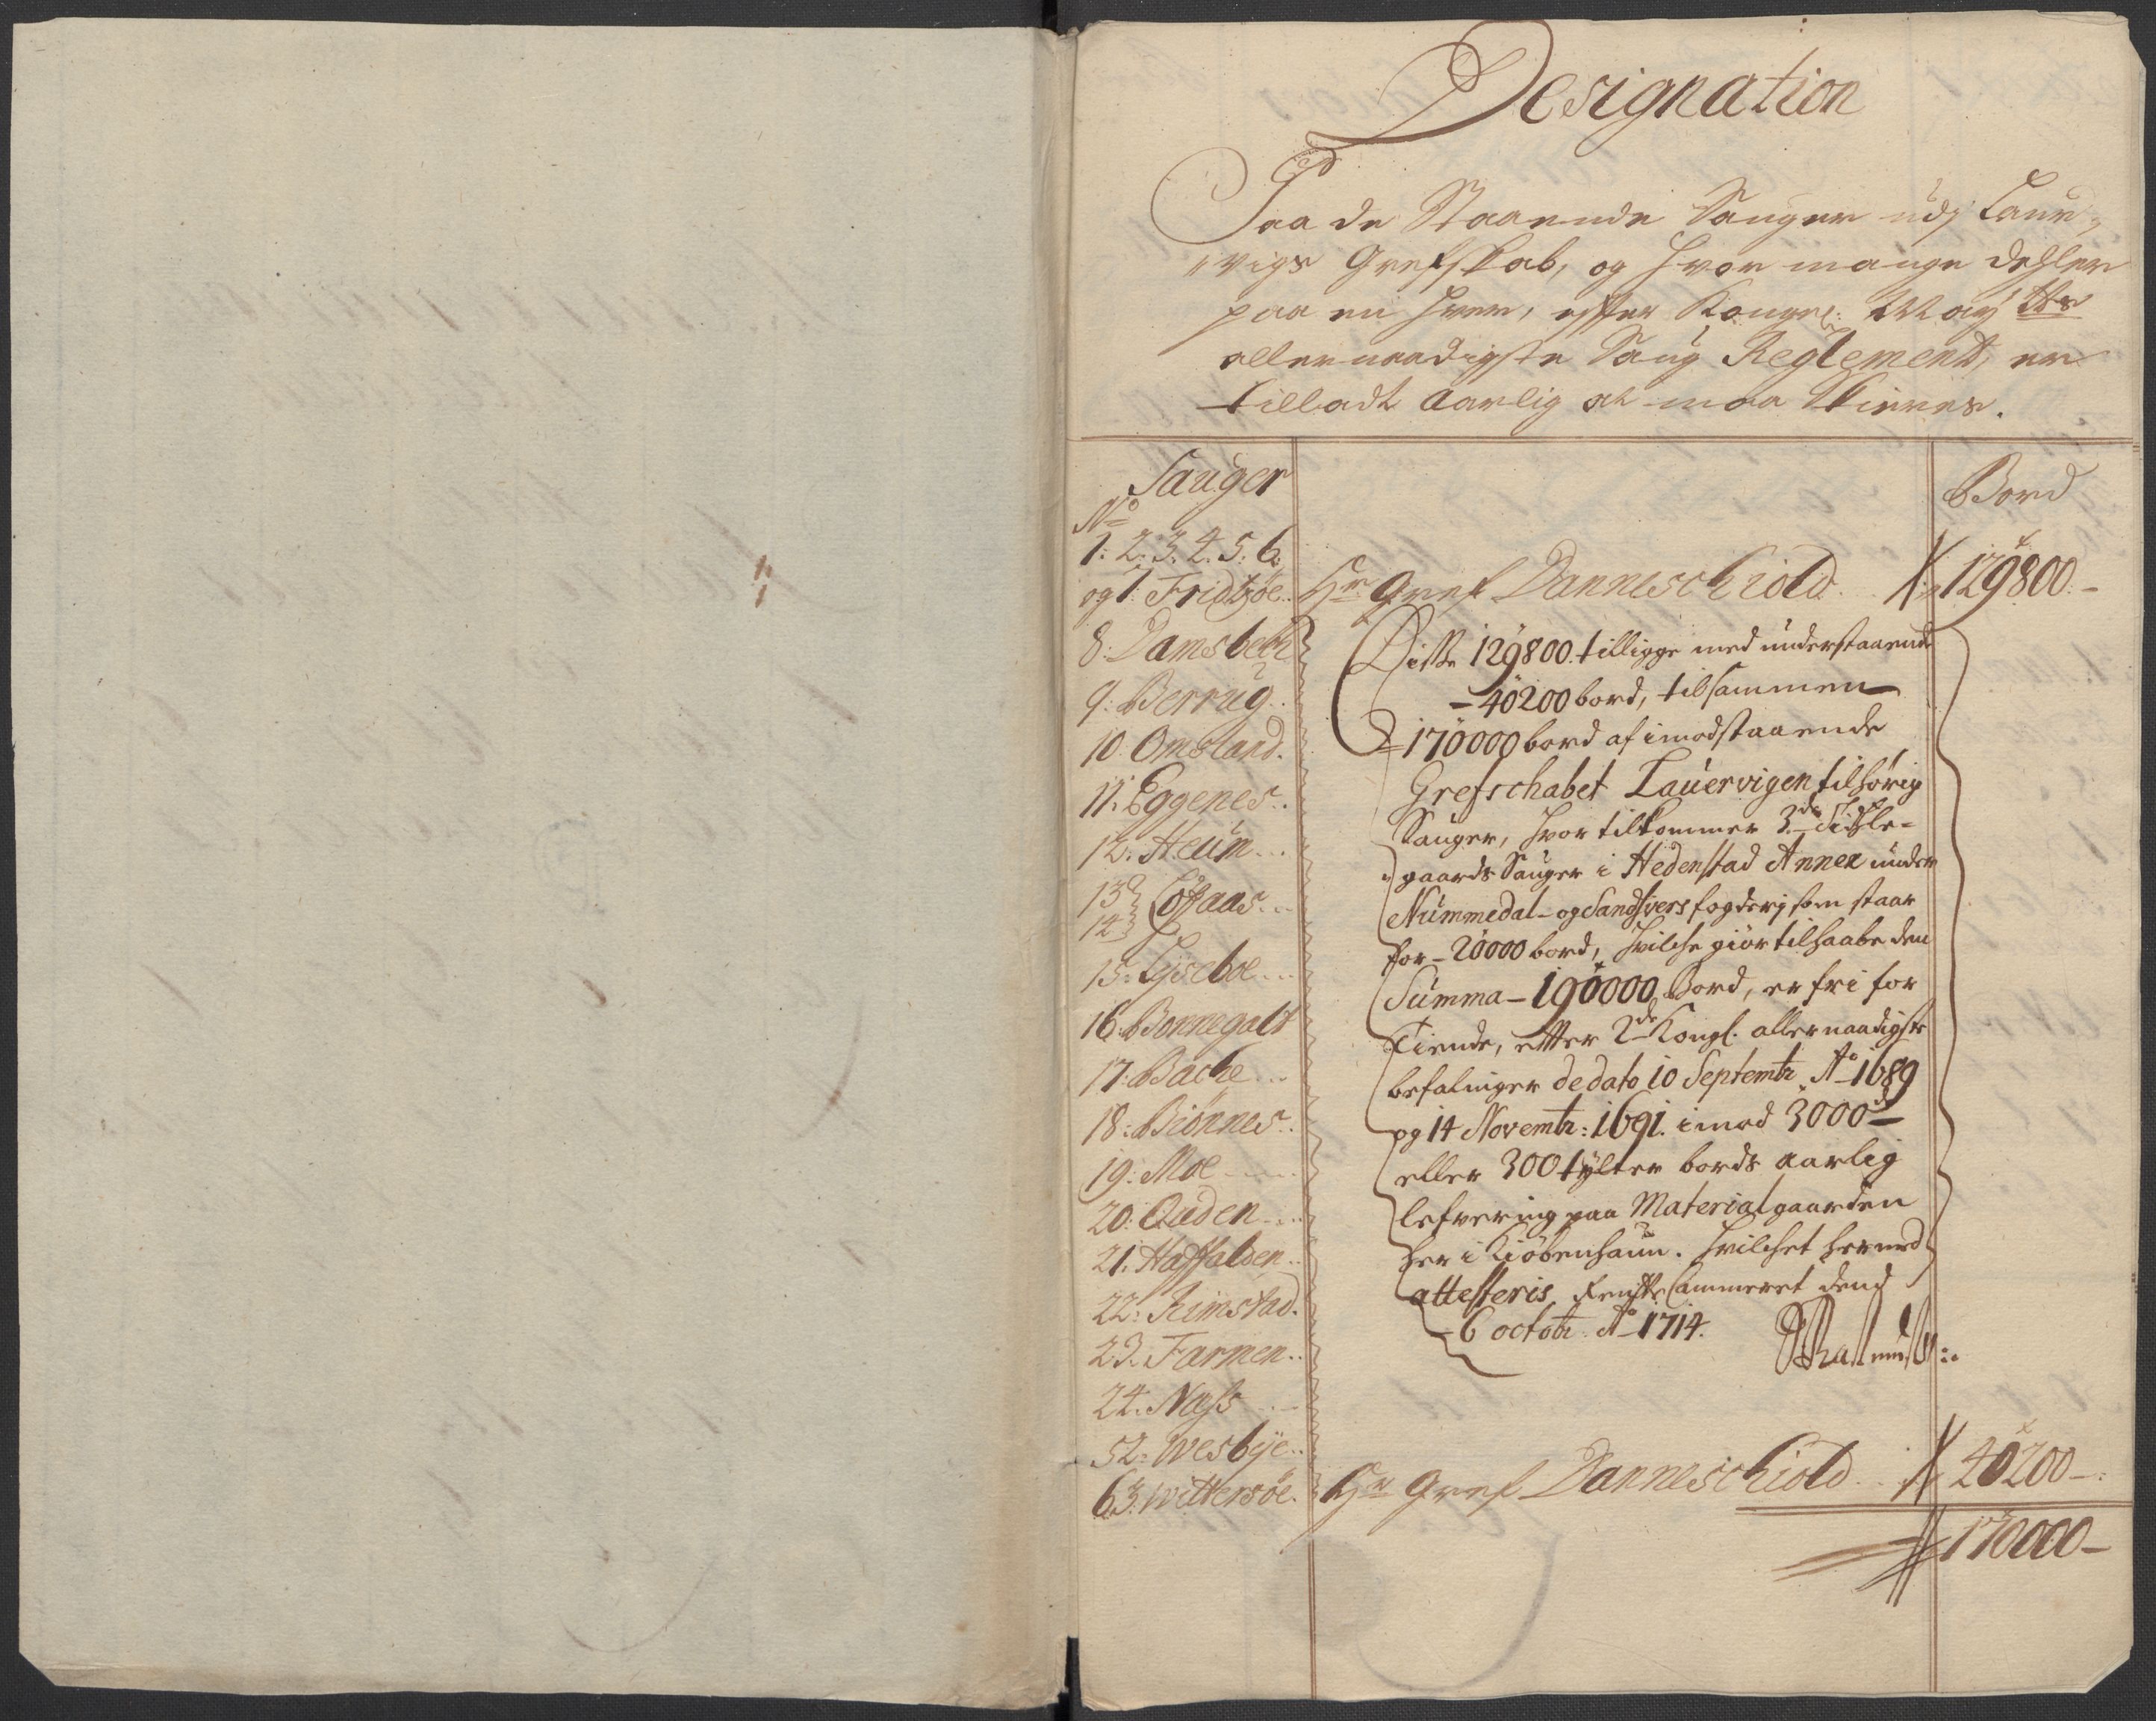 Designation
Paa de Staaende Sauger udj Laur¬
"vigs Grefskab, og hvor mange dehler
paa en hver, efter Kongel: May tts
allernaadigste Saug Reglement, er
tilladt Aarlig at maa Skieres.
Sauger
Bord
No
1: 2. 3. 4. 5: 6.
og 7. Fridtzöe.. Hr Gref Danneschiold. 129800.-
8: Damsbech
9: Berrug..
10. Omsland.
11. Eggenes..
12. Heum...
13
14 Låsaas...
15: Lyseboe...
16. Bonnegalt
17: Bache...
18: Biönnes..
19: Moe
20: Quden....
21. Haffalden..
22: Rimstad.
23. Farmen..
24. Næss
52: Wesbÿe..
63. Wittersöe.
Disse 129800. tilligge med understaaende
- 40200 bord, tilsammen
170000 bord af imodstaaende
Grefschabet Lauervigen tilhörig
Sauger, hvortilkommer 3de
gaards Sauger i Hedenstad Annex under
Nummedal- og Sandsvers fogderj som staar
for - 20000 bord, hvilche giör tilhaabe den
Summa - 190000 Bord, er fri for
Tiende, efter 2de Kongl. allernaadigste
befalinger de dato 10 Septembr Ao 1689
og 14 Novembr: 1691. imod 3000
eller 300 tÿlter bords aarlig
lefvering paa Materialgaarden
her i Kiöbenhaun. hvilchet herved
attesteris. Rente Cammeret dend
6 octobr. Ao 1714.
Hr Gref Danneschiold 40200-
170000-